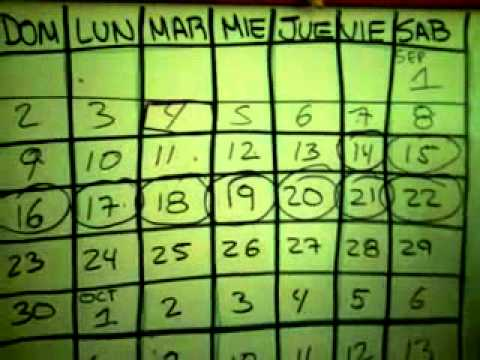 DOM LUN MAR MIE JUE VIE SAB
SEP
1
2 3 4 5 6 7 8
9 10 11 12 13 14 15
16 17 18 19 20 21 22
23 24 25 26 27 28 29
OCT
30 1 2 3 4 5 6